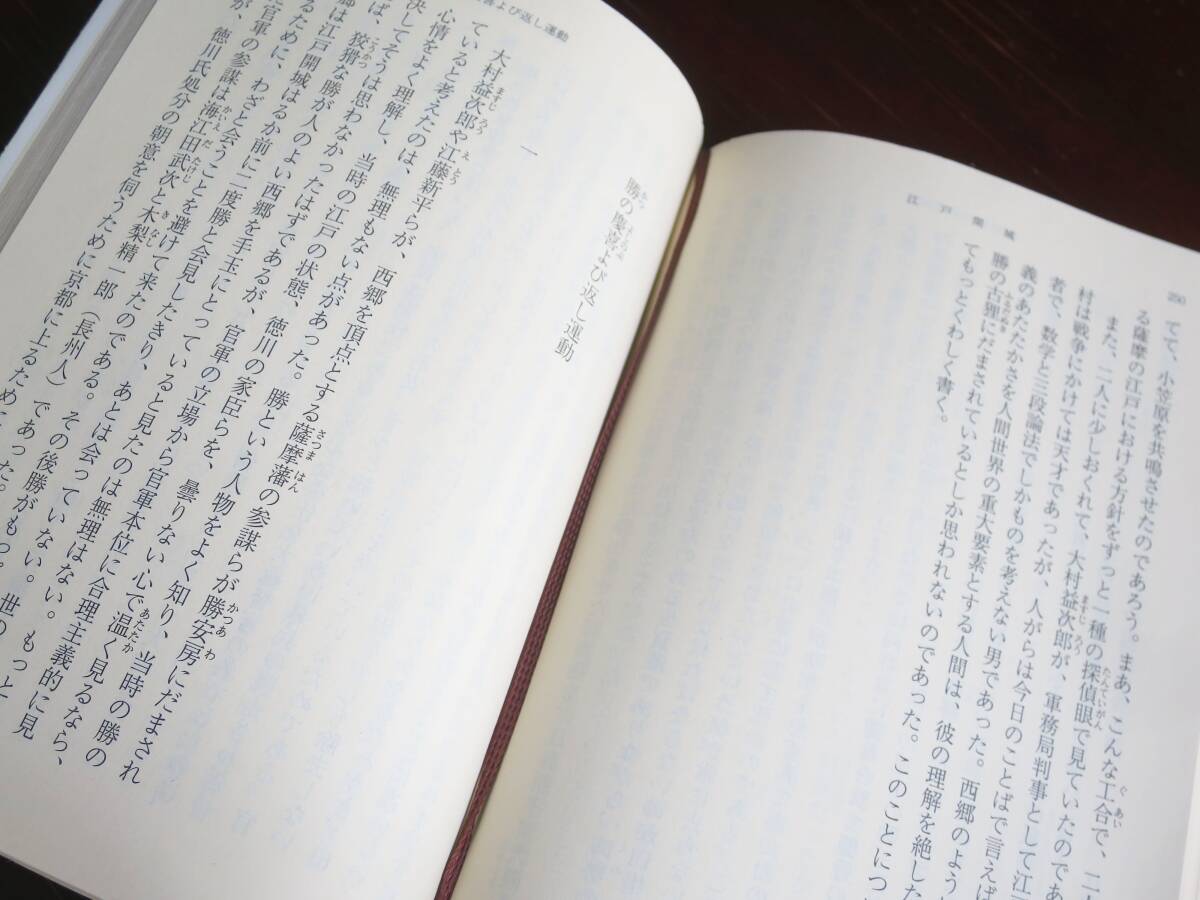 江戸開城
250
てて、小笠原を共鳴させたのであろう。まあ、こんな工合で、二
る薩摩の江戸における方針をずっと一種の探偵眼で見ていたのであ
また、二人に少しおくれて、大村益次郎が、軍務局判事として江
村は戦争にかけては天才であったが、人がらは今日のことばで言えば
者で、数学と三段論法でしかものを考えない男であった。西郷のよう
義のあたたかさを人間世界の重大要素とする人間は、彼の理解を絶した
勝の古狸にだまされているとしか思われないのであった。このことにつ
てもっとくわしく書く。
喜よび返し運動
勝の慶喜よび返し運動
一
大村益次郎や江藤新平らが、西郷を頂点とする薩摩藩の参謀らが勝安房にだまされ
ていると考えたのは、無理もない点があった。勝という人物をよく知り、当時の勝の
心情をよく理解し、当時の江戸の状態、徳川の家臣らを、曇りない心で温く見るなら、
決してそうは思わなかったはずであるが、官軍の立場から官軍本位に合理主義的に見
ば、狡猾な勝が人のよい西郷を手玉にとっていると見たのは無理はない。もっと
郷は江戸開城はるか前に二度勝と会見したきり、あとは会っていない。世の
るために、わざと会うことを避けて来たのである。その後勝がもっ
官軍の参謀は海江田武次と木梨精一郎（長州人）であった。
が、徳川氏処分の朝意を伺うために京都に上るため